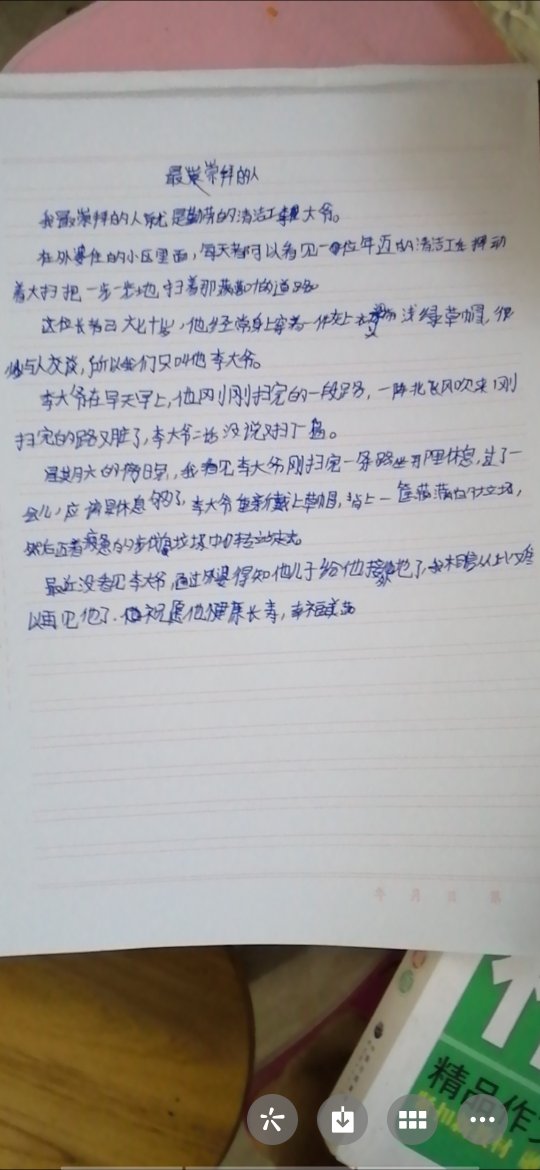 最崇拜的人
我最崇拜的人就是勤劳的清洁工李大爷。
在外婆住的小区里面,每天都可以看见一位年迈的清洁工在挥动
着大扫把一步一步地扫着那落叶的道路
这位长者已六七十岁,他经常身上穿着一件灰上衣 浅绿草帽,很
少与人交谈,所以我们只叫他李大爷。
李大爷在早天早上,他刚刚扫完的一段路,一阵北飞风吹来,刚
扫完的路又脏了,李大爷二话没说又扫了一遍。
星期六的 我看见李大爷刚扫完一条路坐在那里休息,过了一
会儿,应该是休息够了,李大爷重新戴上草帽,背上一筐满满的垃圾,
然后迈着 的步伐向垃圾中转站走去。
最近没看见李大爷,通过外婆得知他儿子给他接 了,我相信从此以难
以再见他了.祝愿他健康长寿,幸福美
精品作文